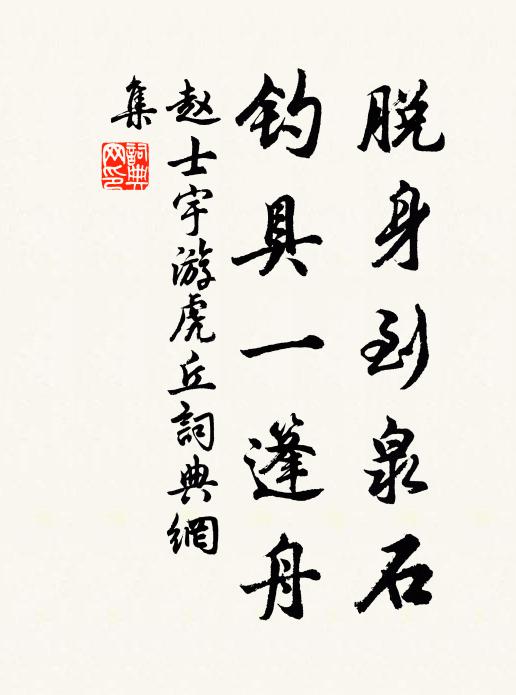 脱身到泉石
钓具一篷舟
赵士宇游虎丘詞典網
集
詞典
网印